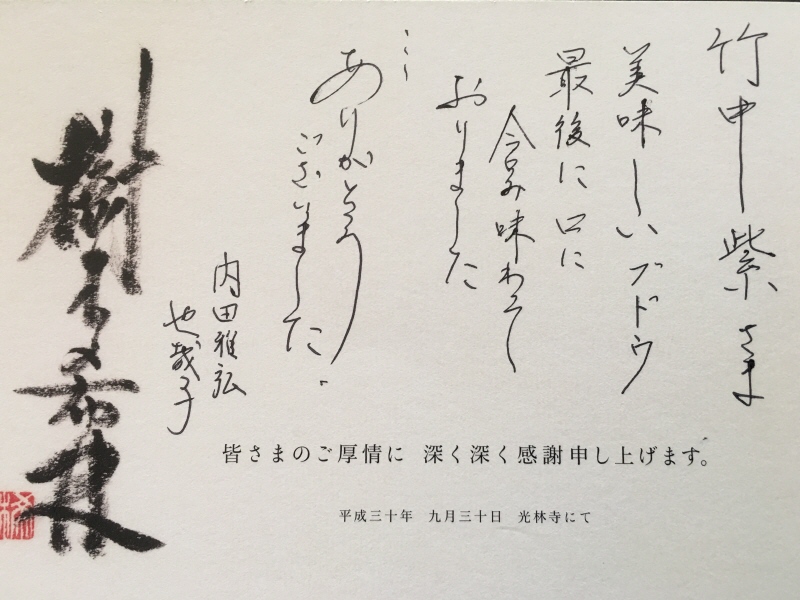 竹中紫さま
美味しいブドウ
最後に口に
含み味わって
おりました
ありがとう
ございました。
内田雅弘
也哉子
樹木希林
皆さまのご厚情に 深く深く感謝申し上げます。
平成三十年 九月三十日 光林寺にて